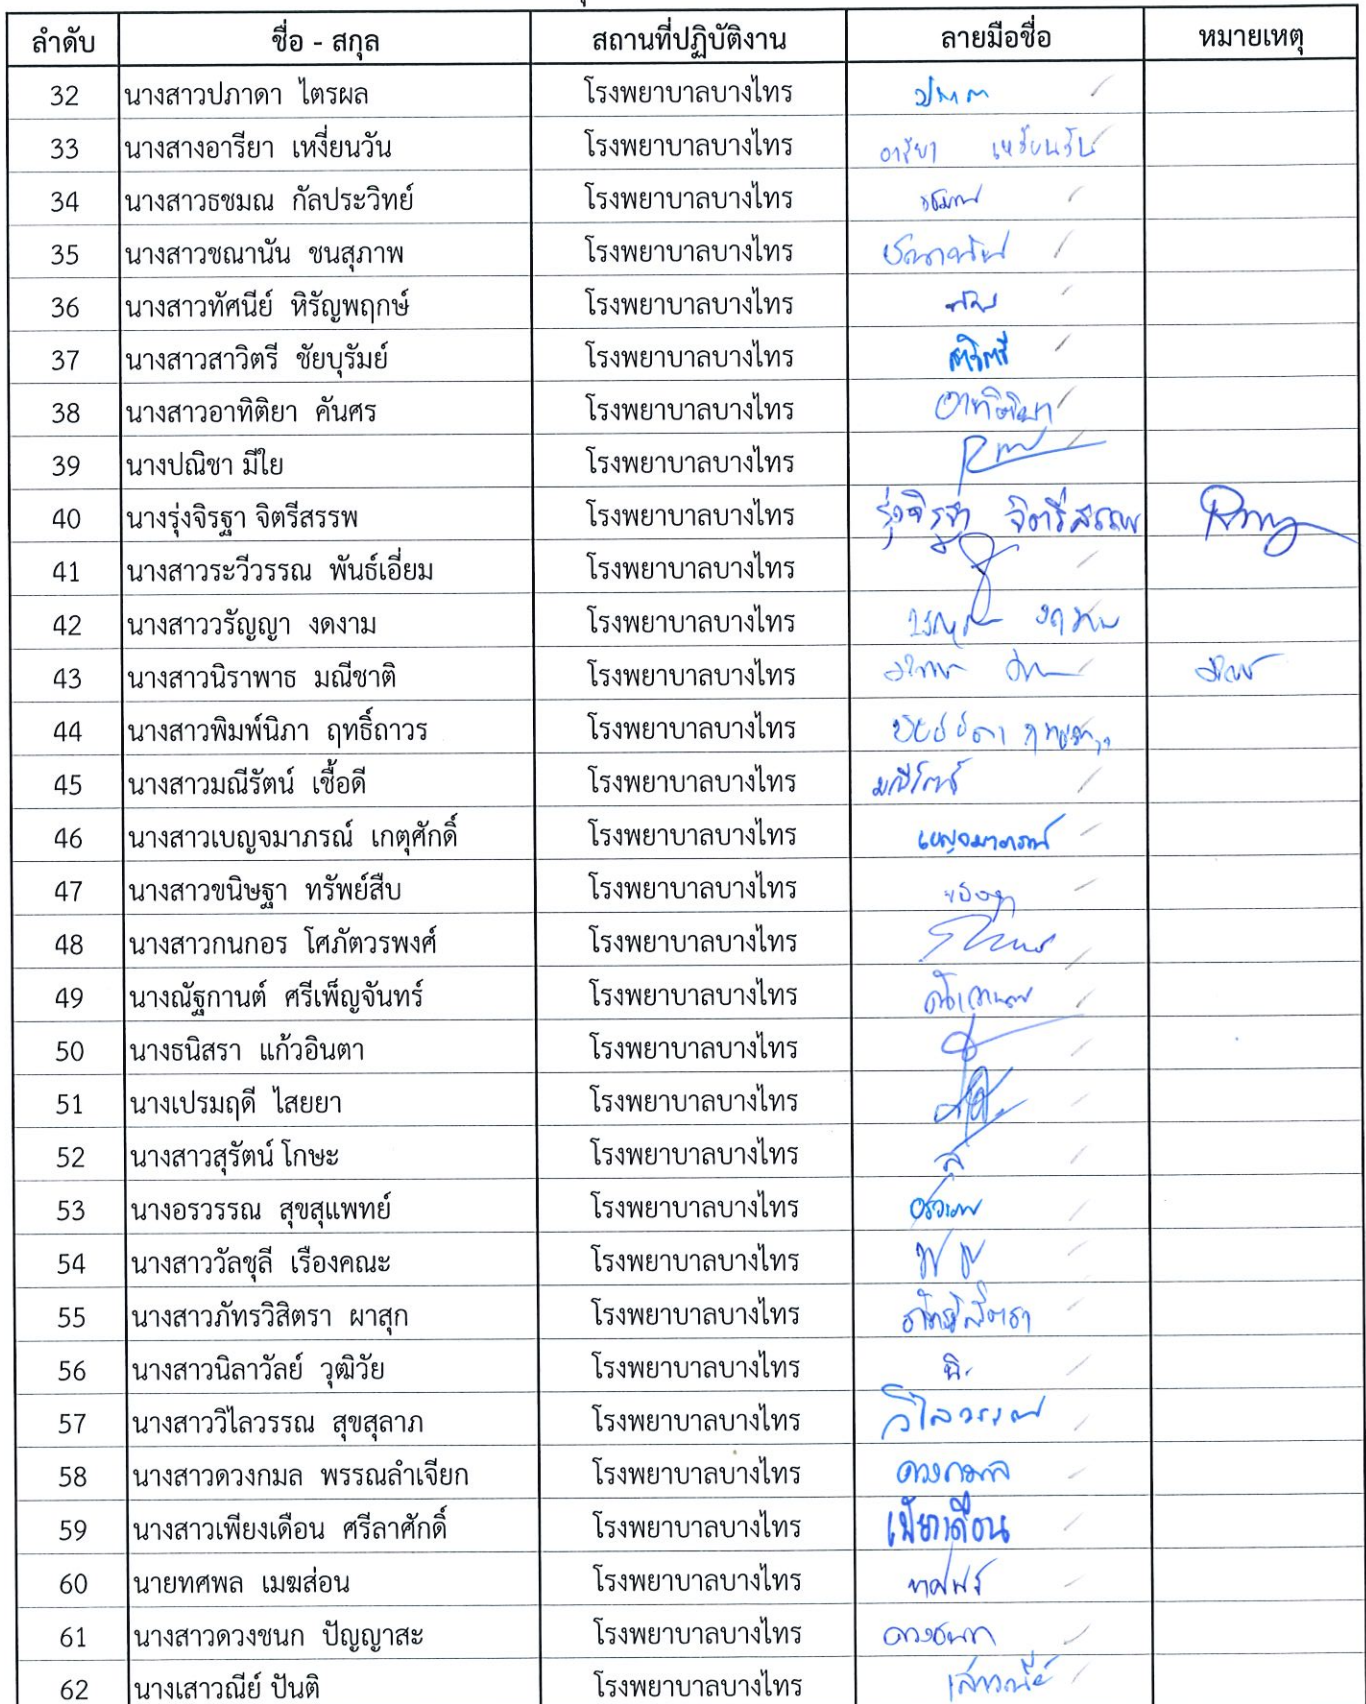 ลำดับ ชื่อ - สกุล สถานที่ปฏิบัติงาน ลายมือชื่อ หมายเหตุ
32 นางสาวปภาดา ไตรผล โรงพยาบาลบางไทร
33 นางสางอารียา เหงี่ยนวัน โรงพยาบาลบางไทร อารียา
34 นางสาวธชมณ กัลประวิทย์ โรงพยาบาลบางไทร
35 นางสาวชณานัน ชนสุภาพ โรงพยาบาลบางไทร
36 นางสาวทัศนีย์ หิรัญพฤกษ์ โรงพยาบาลบางไทร
37 นางสาวสาวิตรี ชัยบุรัมย์ โรงพยาบาลบางไทร สาวิตรี
38 นางสาวอาทิติยา คันศร โรงพยาบาลบางไทร อาทิติยา
39 นางปณิชา มีใย โรงพยาบาลบางไทร
40 นางรุ่งจิรฐา จิตรีสรรพ โรงพยาบาลบางไทร รุ่งจิรฐา จิตรีสรรพ
41 นางสาวระวีวรรณ พันธ์เอี่ยม โรงพยาบาลบางไทร
42 นางสาววรัญญา งดงาม โรงพยาบาลบางไทร
43 นางสาวนิราพาธ มณีชาติ โรงพยาบาลบางไทร
44 นางสาวพิมพ์นิภา ฤทธิ์ถาวร โรงพยาบาลบางไทร
45 นางสาวมณีรัตน์ เชื้อดี โรงพยาบาลบางไทร มณีรัตน์
46 นางสาวเบญจมาภรณ์ เกตุศักดิ์ โรงพยาบาลบางไทร เบญจมาภรณ์
47 นางสาวขนิษฐา ทรัพย์สืบ โรงพยาบาลบางไทร
48 นางสาวกนกอร โศภัตวรพงศ์ โรงพยาบาลบางไทร
49 นางณัฐกานต์ ศรีเพ็ญจันทร์ โรงพยาบาลบางไทร
50 นางธนิสรา แก้วอินตา โรงพยาบาลบางไทร
51 นางเปรมฤดี ไสยยา โรงพยาบาลบางไทร
52 นางสาวสุรัตน์ โกษะ โรงพยาบาลบางไทร
53 นางอรวรรณ สุขสุแพทย์ โรงพยาบาลบางไทร
54 นางสาววัลชุลี เรืองคณะ โรงพยาบาลบางไทร
55 นางสาวภัทรวิสิตรา ผาสุก โรงพยาบาลบางไทร ภัทรวิสิตรา
56 นางสาวนิลาวัลย์ วุฒิวัย โรงพยาบาลบางไทร
57 นางสาววิไลวรรณ สุขสุลาภ โรงพยาบาลบางไทร วิไลวรรณ
58 นางสาวดวงกมล พรรณลำเจียก โรงพยาบาลบางไทร ดวงกมล
59 นางสาวเพียงเดือน ศรีลาศักดิ์ โรงพยาบาลบางไทร เพียงเดือน
60 นายทศพล เมฆส่อน โรงพยาบาลบางไทร
61 นางสาวดวงชนก ปัญญาสะ โรงพยาบาลบางไทร ดวงชนก
62 นางเสาวณีย์ ปันติ โรงพยาบาลบางไทร เสาวณีย์